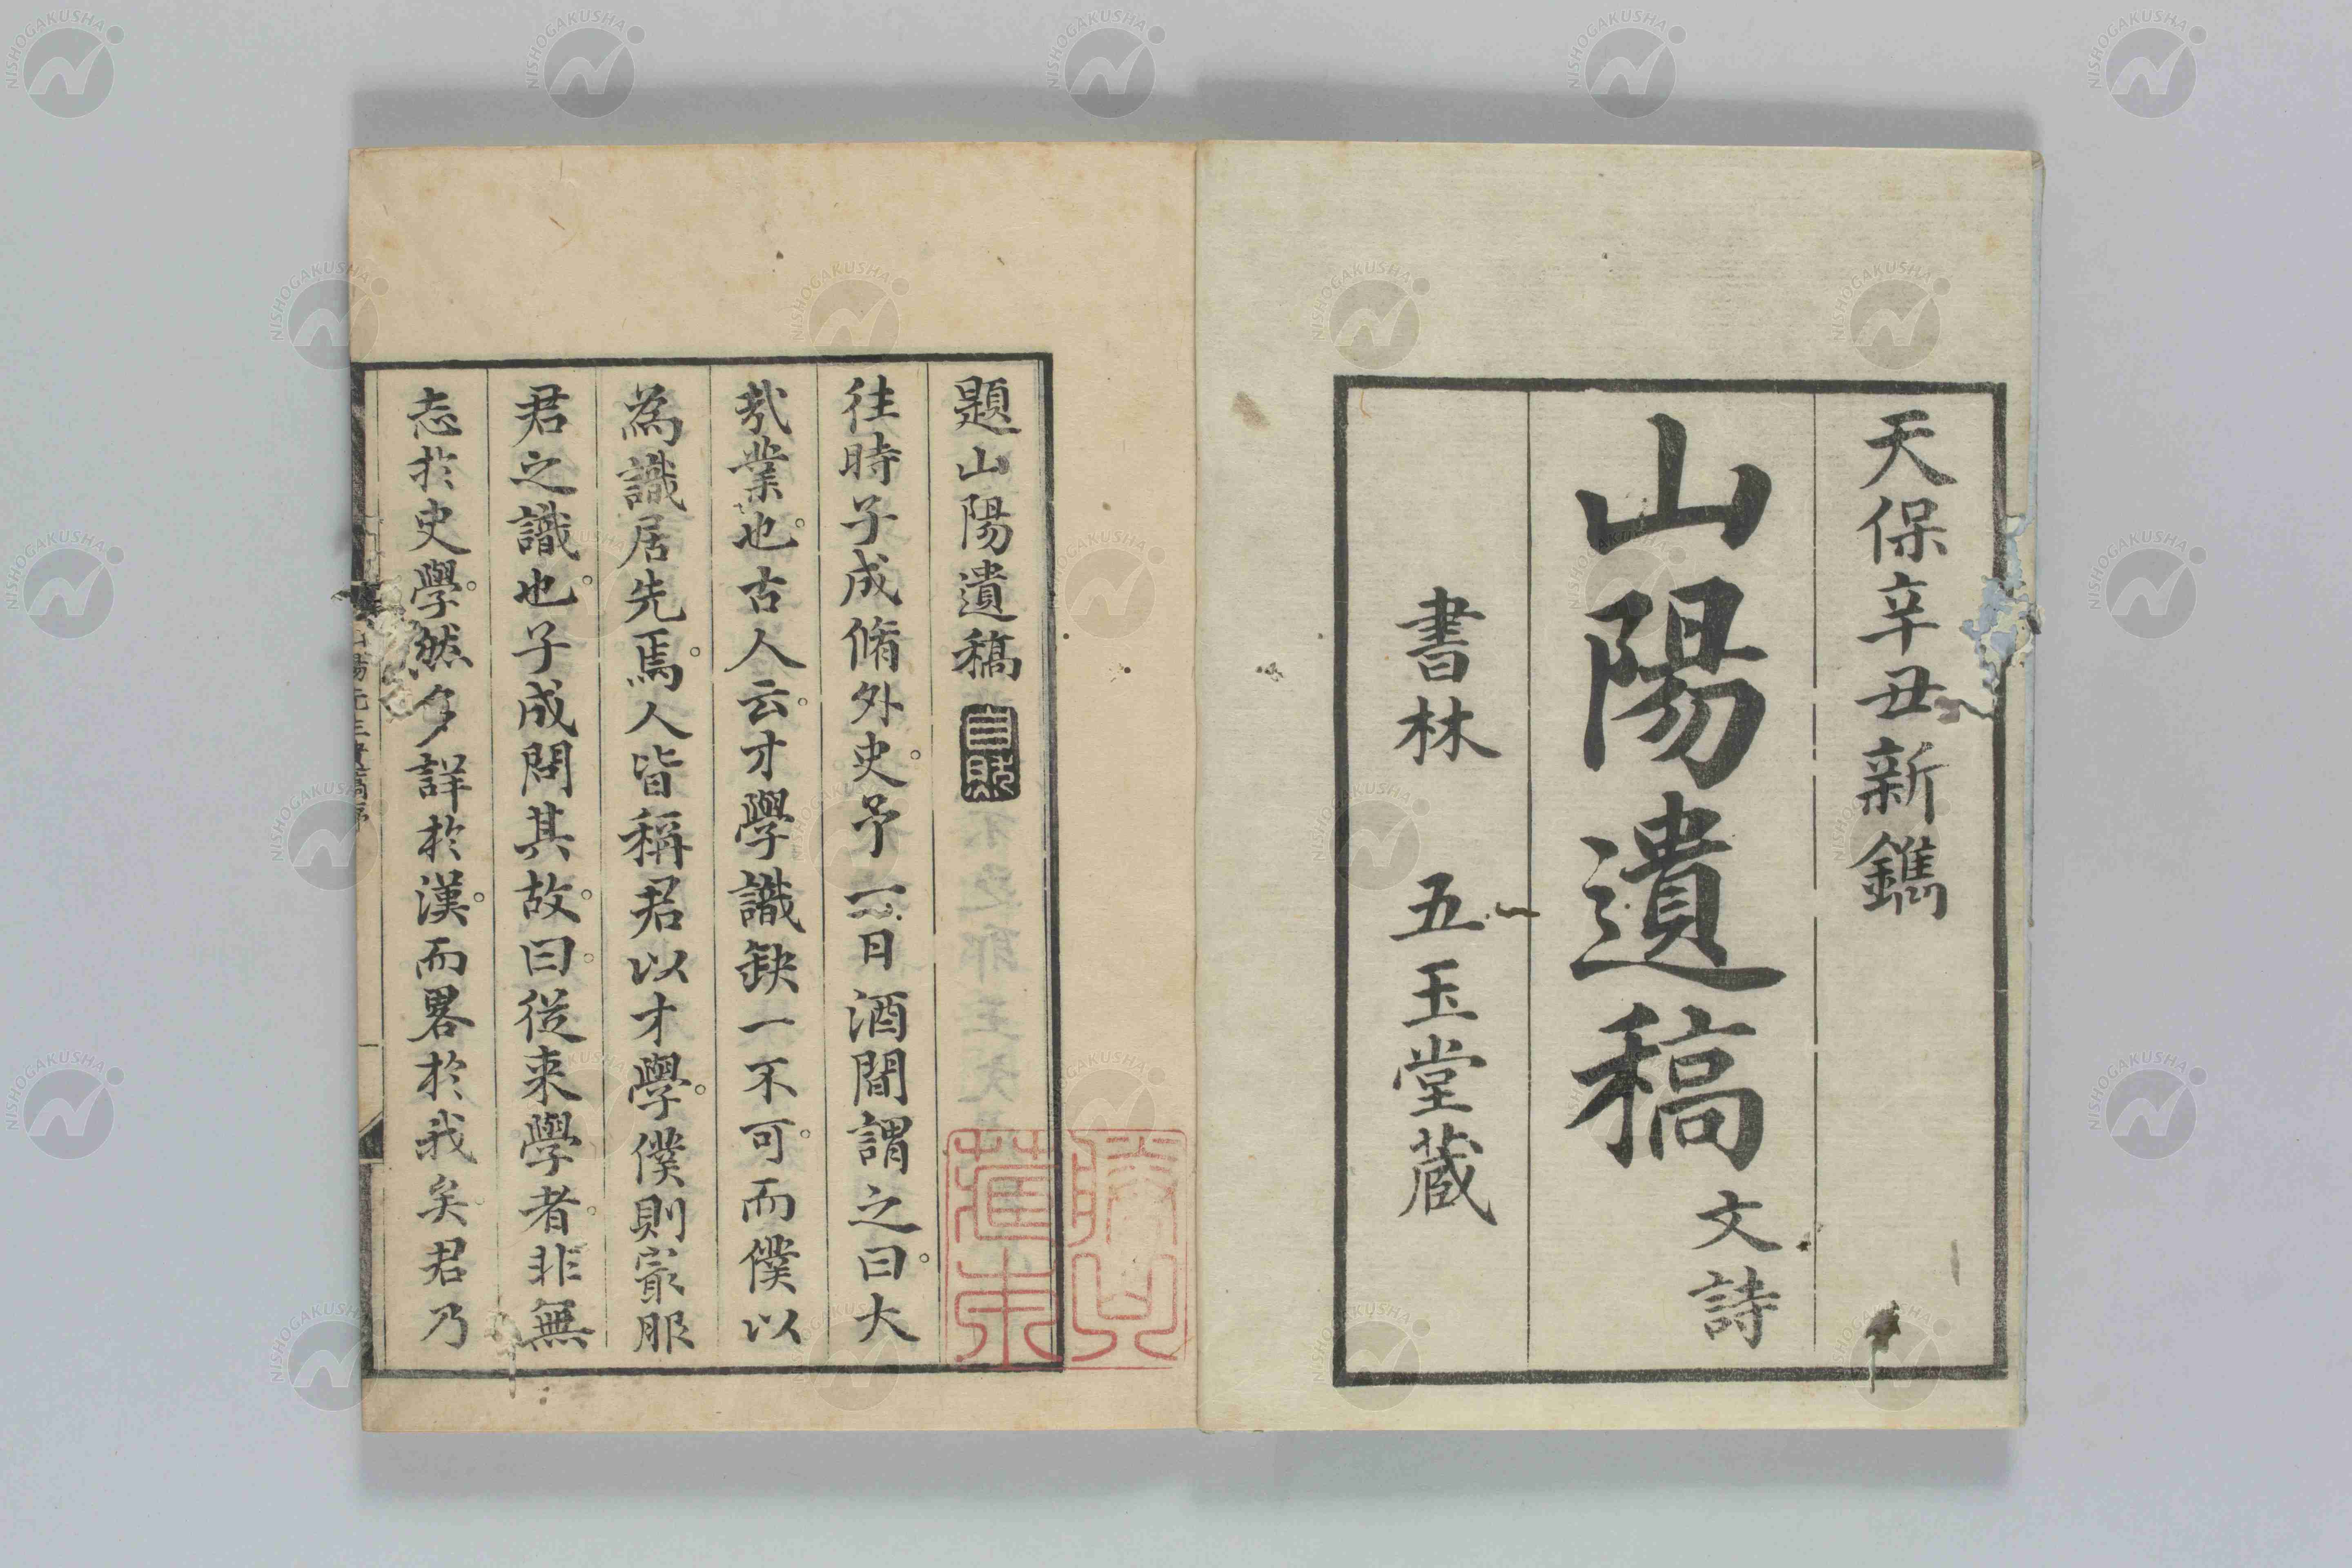 天保辛丑新鐫
山陽遺稿 文詩
書林 五玉堂蔵
題山陽遺稿
往時子成脩外史。予一日酒間謂之曰。大
哉業也。古人云。才學識缺一不可。而僕以
為識居先焉。人皆稱君以才學。僕則最服
君之識也。子成問其故。曰。從来學者。非無
志於史學。然多詳於漢。而畧於我矣。君乃
NISHOGAKUSHA